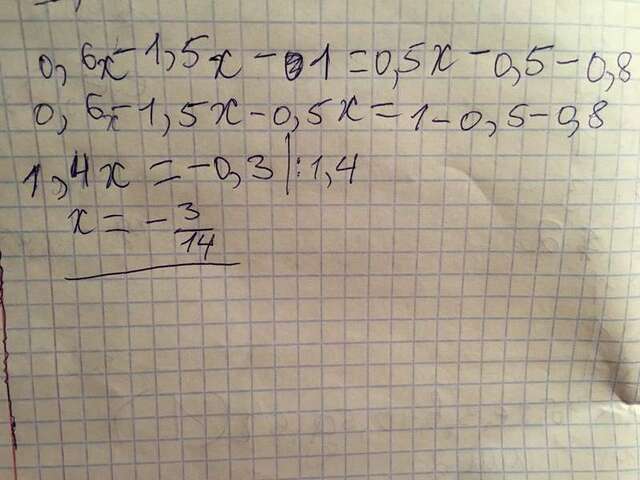 0,6x-1,5x-1=0,5x-0,5-0,8
0,6x-1,5x-0,5x=1-0,5-0,8
1,4x=-0,3|:1,4
x=-3/14